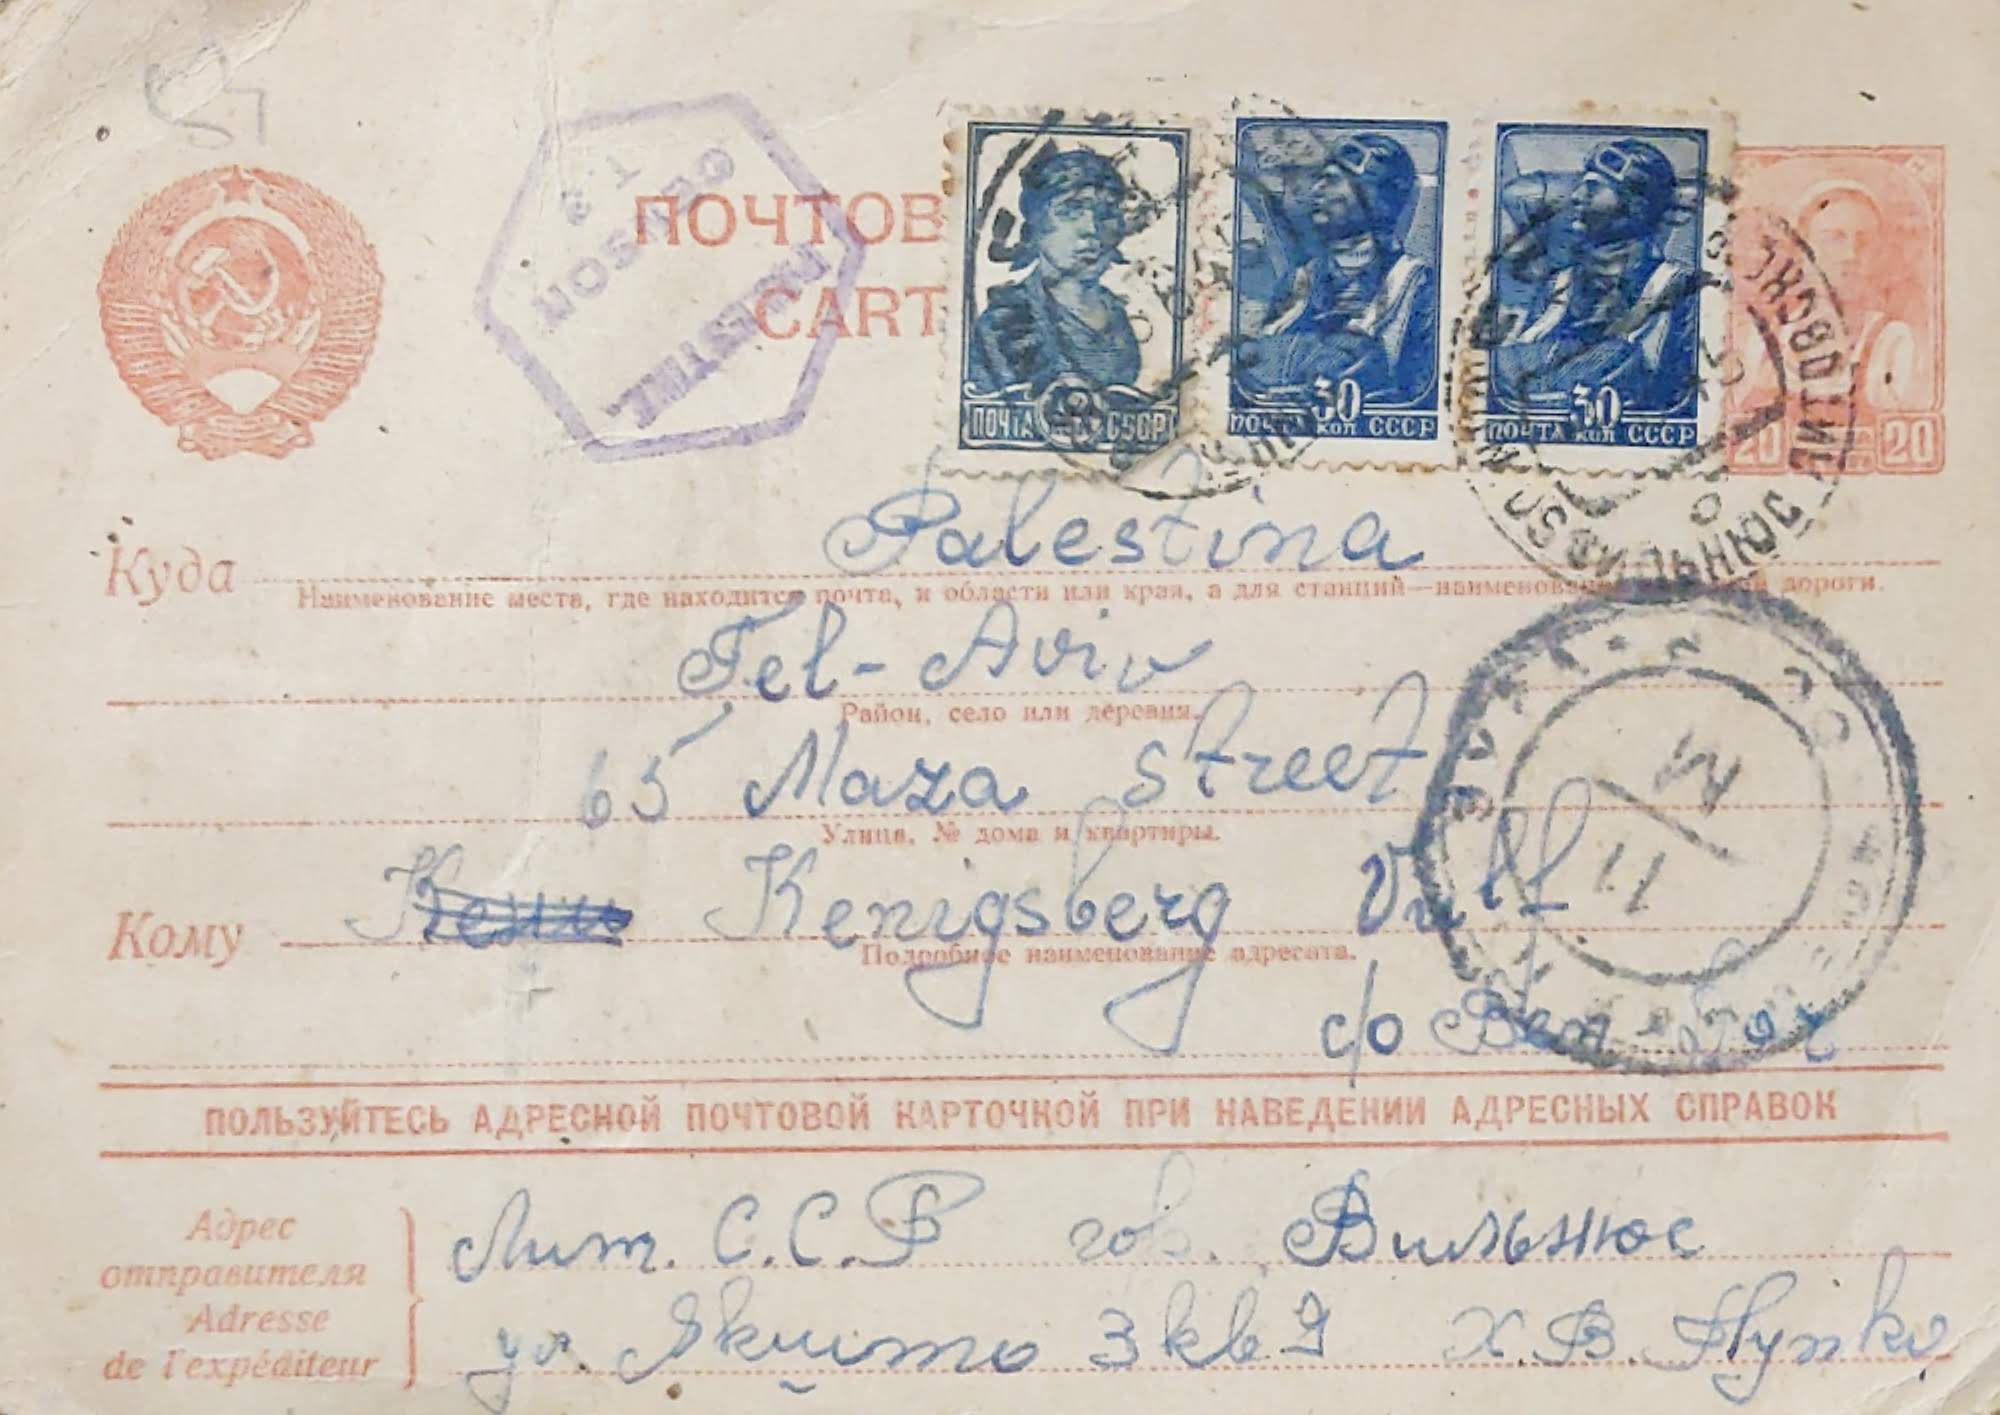 ПОЧТОВ
CART
PALESTINE.
CENSOR
T.2
ПОЧТА СССР
30
ПОЧТА КОП СССР
30
ПОЧТА КОП СССР
20 20
Куда Palestina
Наименование места, где находится почта, и области или края, а для станций—наименование дороги.
Tel-Aviv
Район, село или деревня.
65 Maza Street
Улица, № дома и квартиры.
Кому Kenigsberg Vulf
Подробное наименование адресата.
c/o
11
M
ПОЛЬЗУЙТЕСЬ АДРЕСНОЙ ПОЧТОВОЙ КАРТОЧКОЙ ПРИ НАВЕДЕНИИ АДРЕСНЫХ СПРАВОК
Адрес
отправителя
Adresse
de l'expéditeur
Лит. С.С.Р гор. Вильнюс
ул. 3 кв 9 Х.В.